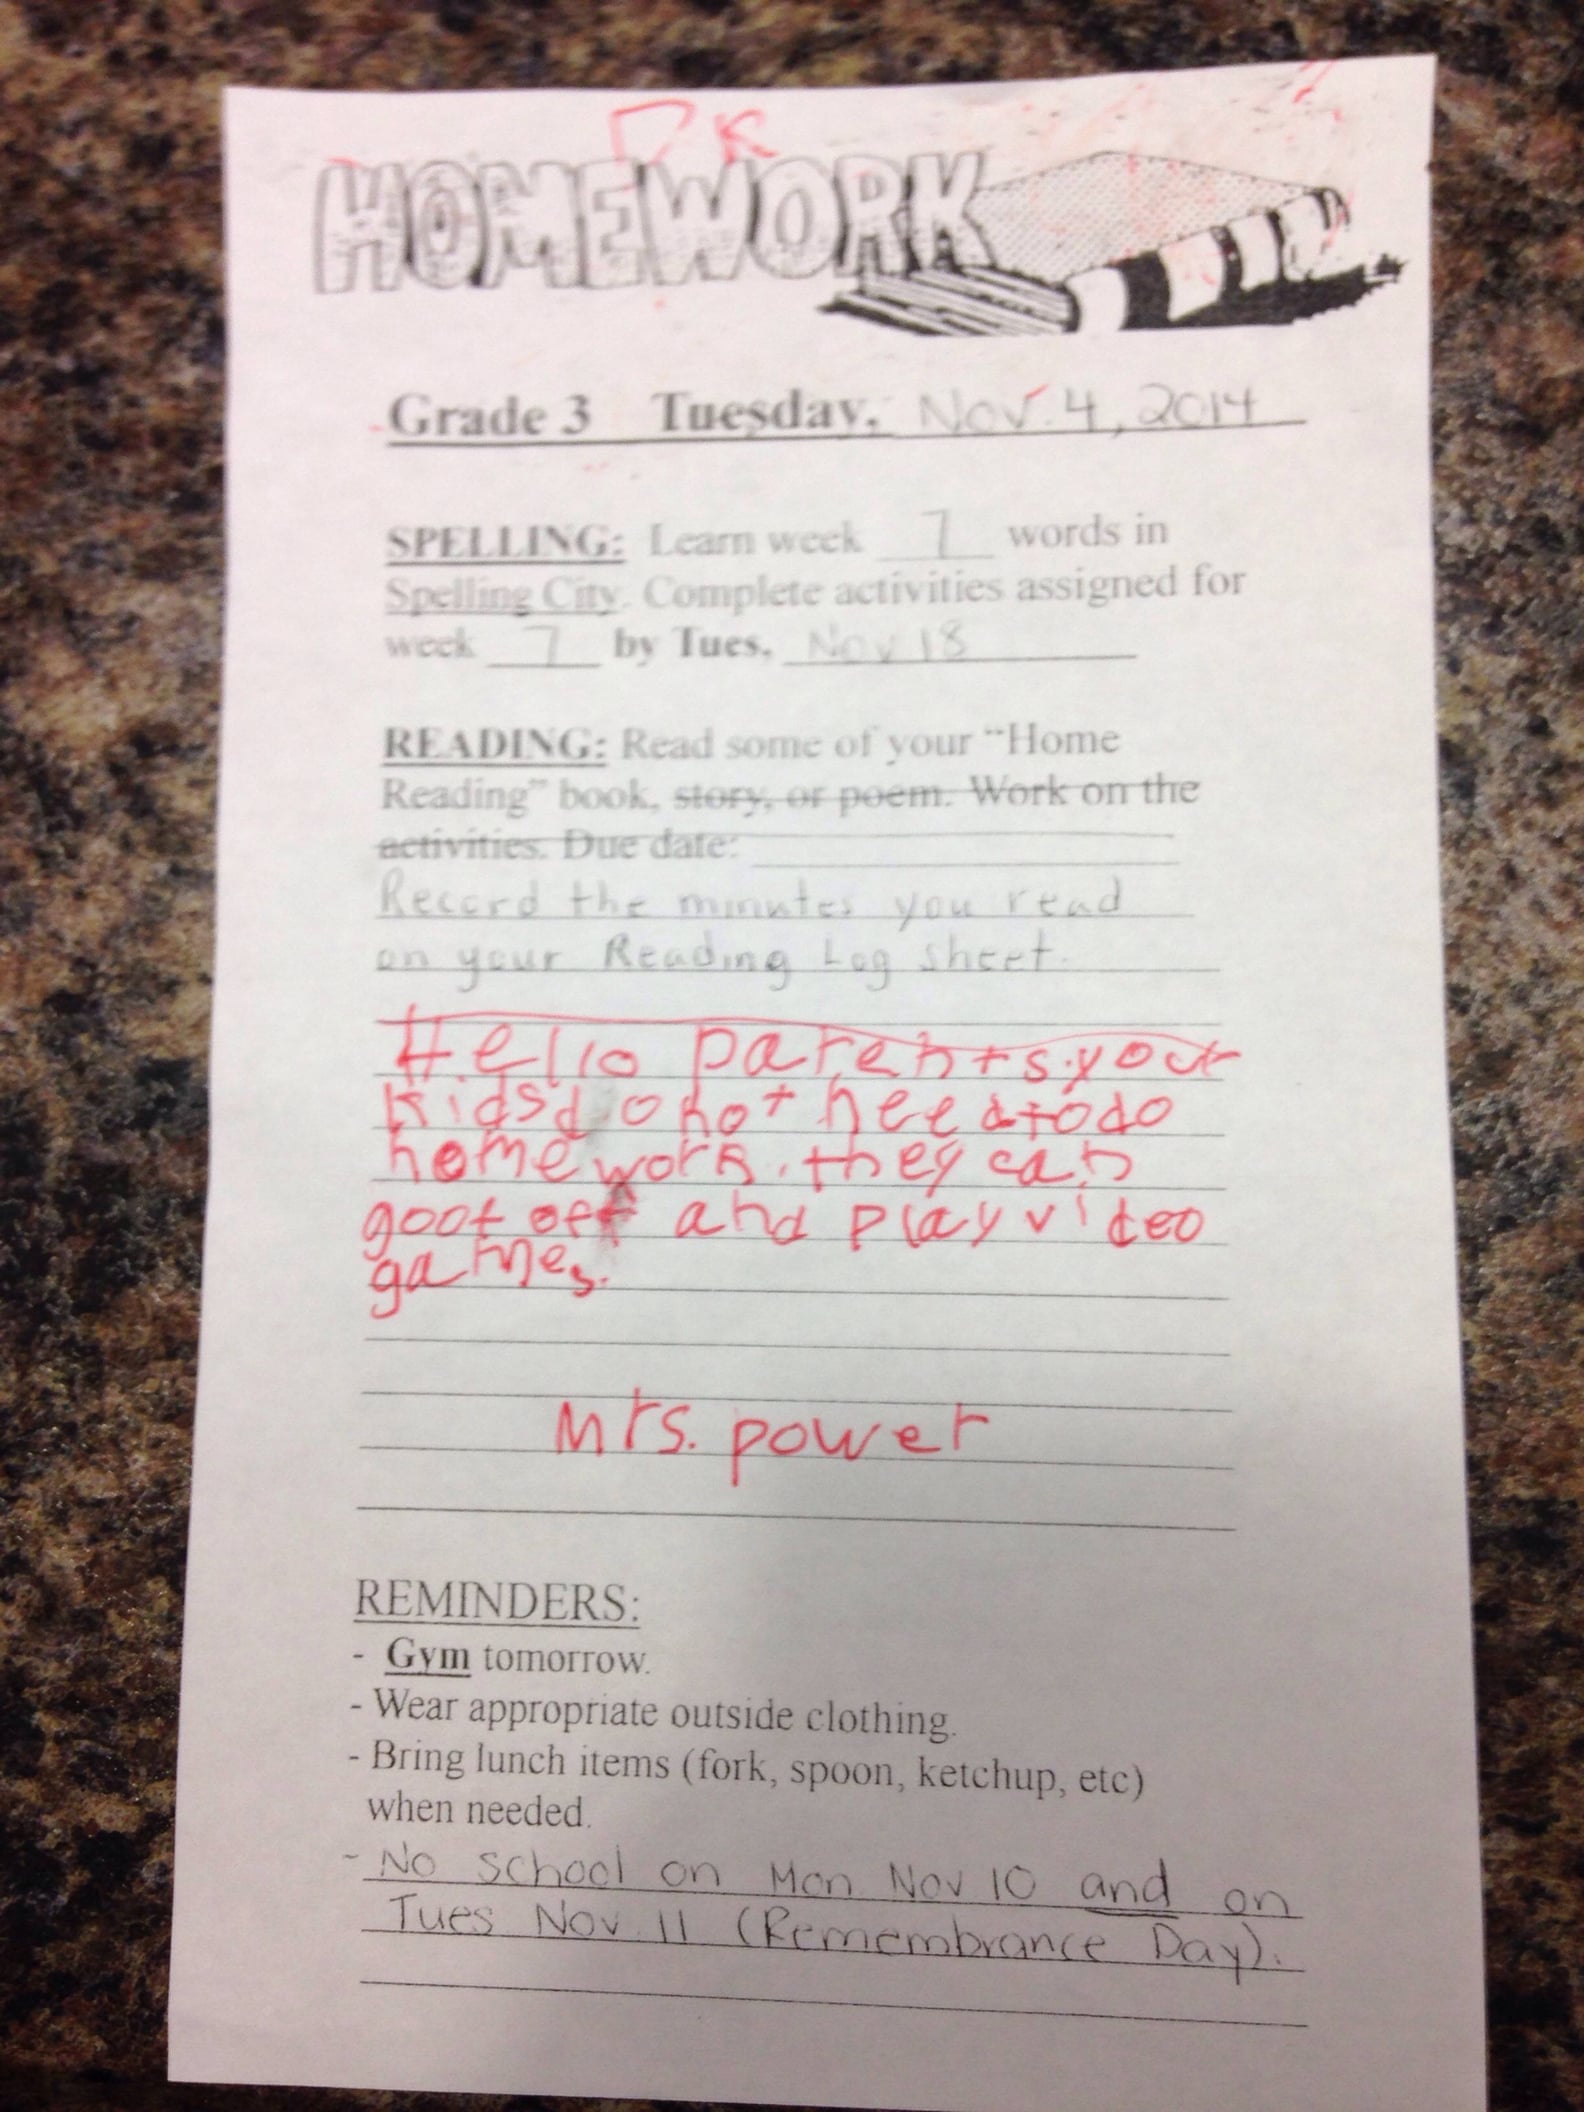 HOMEWORK
Grade 3 Tuesday, Nov. 4, 2014
SPELLING: Learn week 7 words in
Spelling City. Complete activities assigned for
week 7 by Tues. Nov 18
READING: Read some of your "Home
Reading" book, story, or poem. Work on the
activities. Due date:
Record the minutes you read
on your Reading Log sheet.
Hello parents. your
kids do not need to do
homework. they can
goof off and play video
games.
Mrs. power
REMINDERS:
- Gym tomorrow.
- Wear appropriate outside clothing.
- Bring lunch items (fork, spoon, ketchup, etc)
when needed.
- No school on Mon Nov 10 and on
Tues Nov. 11 (Remembrance Day).